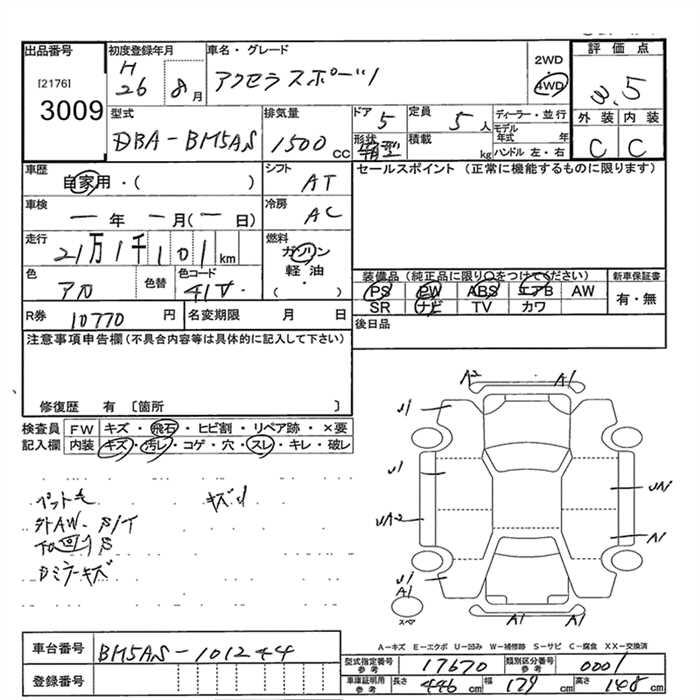 出品番号 初度登録年月 車名・グレード 2WD 評価点
[2176] H 26 8月 アクセラスポーツ 4WD 3.5
3009
型式 排気量 ドア 5 定員 5人 ディーラー・並行 外装 内装
DBA-BM5AS 1500cc 形状 箱型 積載 kg モデル年式 年 C C
ハンドル 左・右
車歴 シフト セールスポイント (正常に機能するものに限ります)
自家用・( ) AT
車検 冷房
ー年 ー月(ー日) AC
走行 燃料
21万1千101km ガソリン
軽油・
色 色替 色コード ( )
アカ 41V 装備品(純正品に限り○をつけてください) 新車保証書
PS PW ABS エアB AW 有・無
SR ナビ TV カワ
R券 10770円 名変期限 月 日 後日品
注意事項申告欄(不具合内容等は具体的に記入して下さい)
修復歴 有 〔箇所 〕
検査員 FW キズ・飛石・ヒビ割・リペア跡・×要
記入欄 内装 キズ・汚レ・コゲ・穴・スレ・キレ・破レ
A2 A1
U1
ペット毛 キズU U1 UA1
外AW S/T UA-2
下回りS A1
ドミラーキズ U1
A1
スペア A1 A1
A-キズ E-エクボ U-凹み W-補修跡 S-サビ C-腐食 XX-交換済
車台番号 BM5AS-101244 型式指定番号 参考 17670 類別区分番号 参考 0001
登録番号 車庫証明用 参考 長さ 446cm 幅 179cm 高さ 148cm